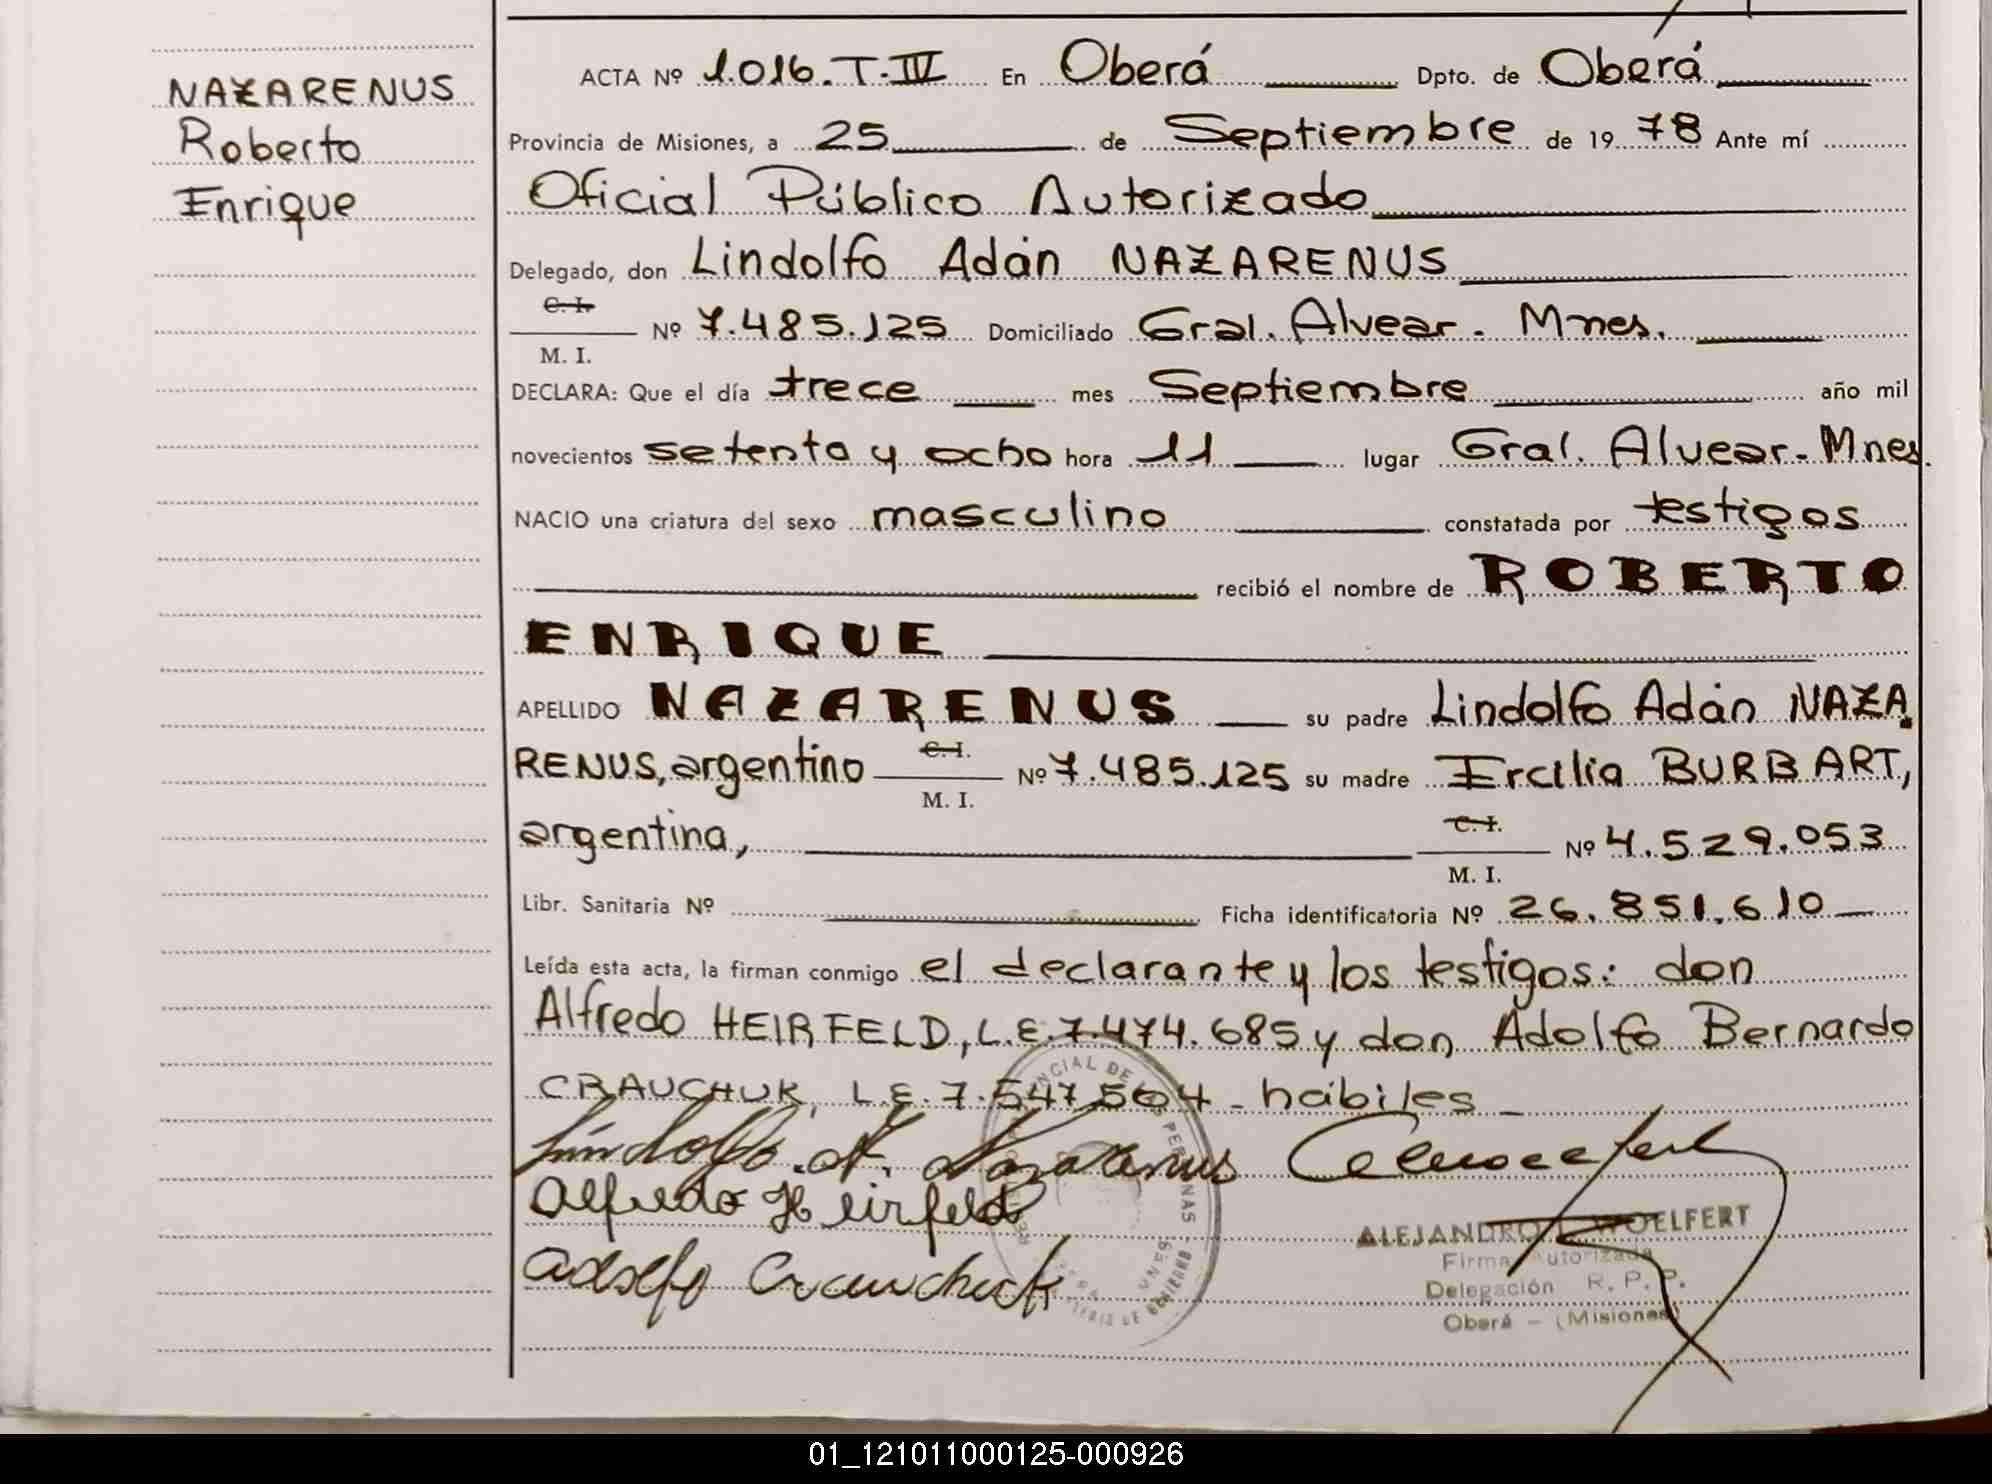 NAZARENUS
Roberto
Enrique
ACTA Nº 1.016.T.IV En Oberá Dpto. de Oberá
Provincia de Misiones, a 25 de Septiembre de 1978 Ante mí
Oficial Público Autorizado
Delegado, don Lindolfo Adán NAZARENUS
C. I.
M. I. Nº 7.485.125 Domiciliado Gral. Alvear. Mnes.
DECLARA: Que el día trece mes Septiembre año mil
novecientos setenta y ocho hora 11 lugar Gral. Alvear. Mnes.
NACIO una criatura del sexo masculino constatada por testigos
recibió el nombre de ROBERTO
ENRIQUE
APELLIDO NAZARENUS su padre Lindolfo Adán NAZA
RENUS, argentino C. I. M. I. Nº 7.485.125 su madre Ercilia BURBART,
argentina, C. I. M. I. Nº 4.529.053
Libr. Sanitaria Nº Ficha identificatoria Nº 26.851.610
Leída esta acta, la firman conmigo el declarante y los testigos: don
Alfredo HEIRFELD, L.E. 7.474.685 y don Adolfo Bernardo
CRAUCHUK, L.E. 7.547.504 - hábiles
Lindolfo. A. Nazarenus
Alfredo Heirfeld
ALEJANDRO WOELFERT
Adolfo Crauchuk
Firma Autorizada
Delegación R. P. P.
Oberá - (Misiones)
01_121011000125-000926